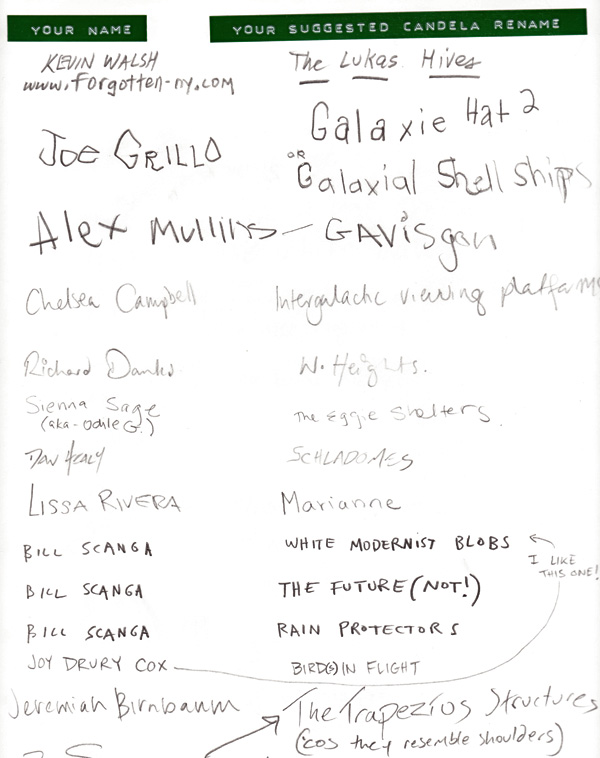 YOUR NAME YOUR SUGGESTED CANDELA RENAME
KEVIN WALSH The Lukas Hives
www.forgotten-ny.com
JOE GRILLO Galaxie Hat 2
OR Galaxial Shell Ships
Alex Mullins - GAVisgon
Chelsea Campbell Intergalactic viewing platforms
Richard Danks W. Heights.
Sienna Sage The Eggie Shelters.
(aka-Uchle G.)
DAN HEALY SCHLADOMES
LISSA RIVERA Marianne
BILL SCANGA WHITE MODERNIST BLOBS
I LIKE
THIS ONE!
BILL SCANGA THE FUTURE (NOT!)
BILL SCANGA RAIN PROTECTORS
JOY DRURY COX BIRD(S) IN FLIGHT
Jeremiah Birnbaum The Trapezius Structures
('cos they resemble shoulders)